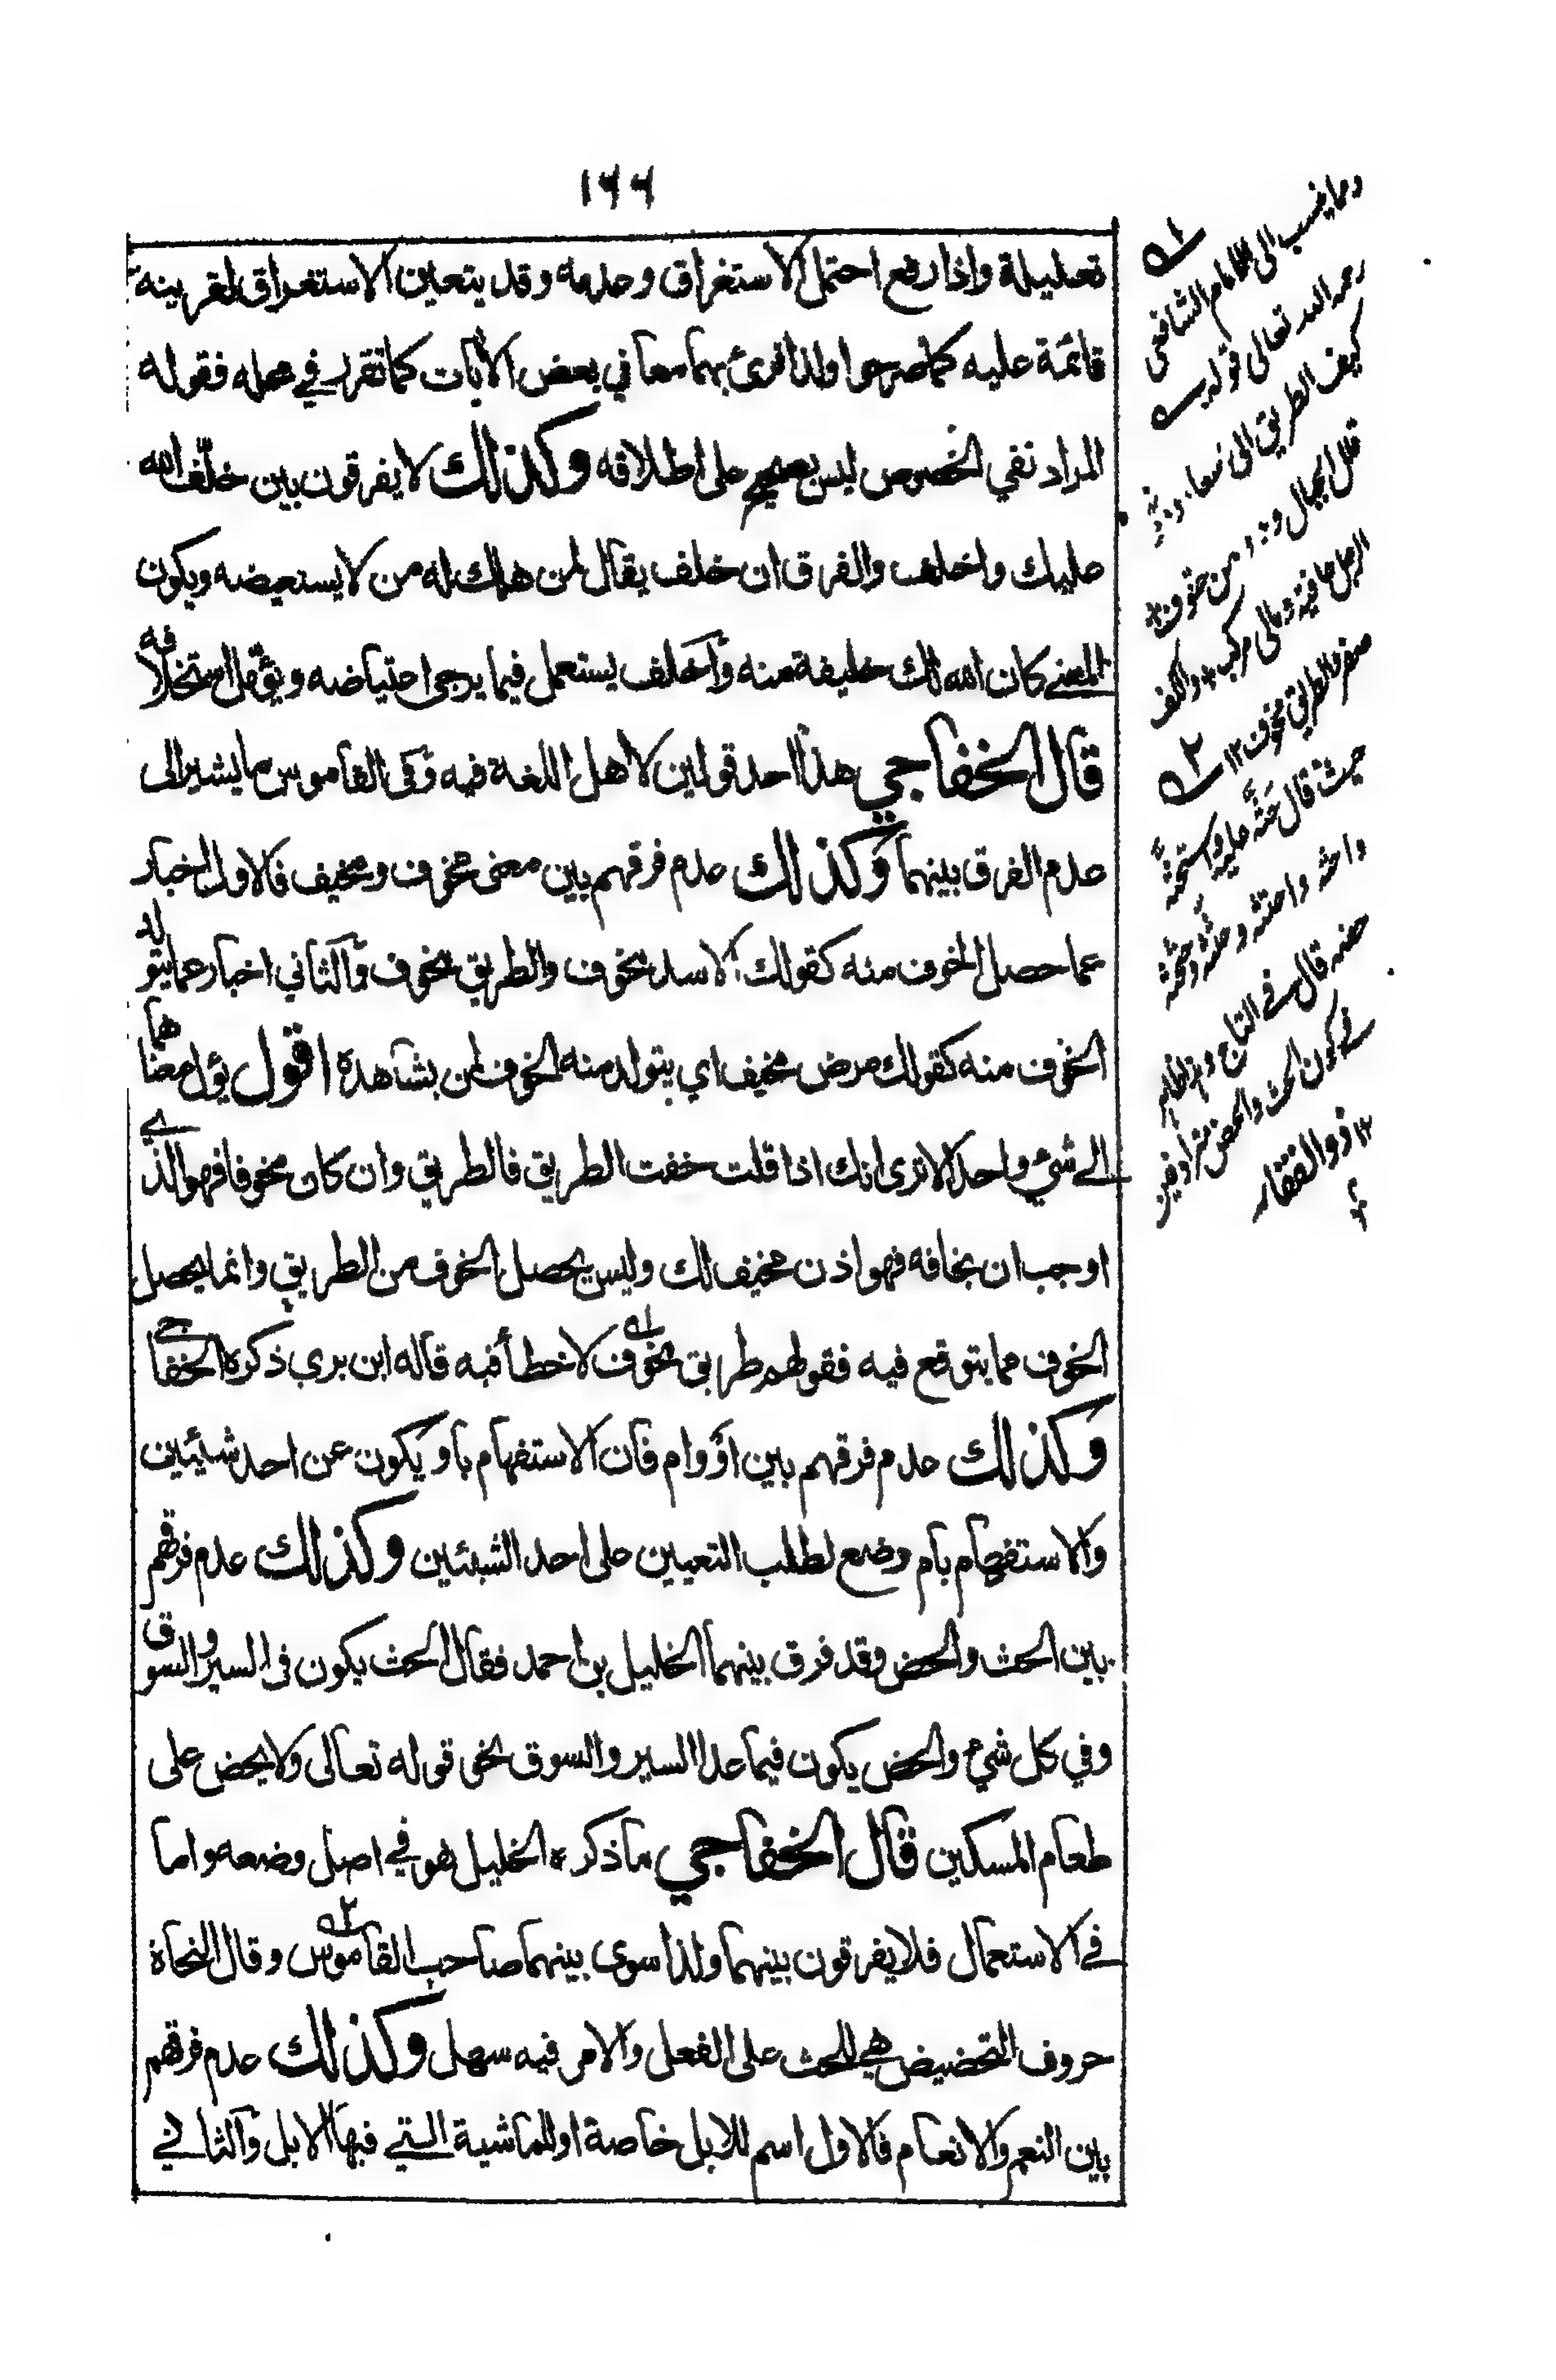 ١٦٦
تعليلة واذا رفع احتمل الاستغراق وعدمه وقد يتعين الاستغراق لقرينة
قائمة عليه كما صرحوا ولذا قرئ بهما معا في بعض الآيات كما تقرر في محله فقوله
المراد نفي الخصوص ليس بصحيح على اطلاقه وكذلك لا يفرقون بين خلف الله
عليك واخلف والفرق ان خلف يقال لمن هلك له من لا يستعيضه ويكون
المعنے كان الله لك خليفة منه وأخلف يستعمل فيما يرجى اعتياضه ويؤمل استخلافه
قال الخفاجي هذا احد قولين لاهل اللغة فيه وفى القاموس ما يشير الى
عدم الفرق بينهما وكذلك عدم فرقهم بين معنى مخوف ومخيف فالاول اخبار
عما حصل الخوف منه كقولك الاسد مخوف والطريق مخوف والثاني اخبار عما يتولد
الخوف منه كقولك مرض مخيف اي يتولد منه الخوف لمن يشاهده اقول يؤل معناهما
الے شيء واحد الا ترى انك اذا قلت خفت الطريق فالطريق وان كان مخوفا فهو الذے
اوجب ان تخافه فهو اذن مخيف لك وليس يحصل الخوف من الطريق وانما يحصل
الخوف مما يتوقع فيه فقولهم طريق مخوف ١ لا خطأ فيه قاله ابن بري ذكره الخفاجے
وكذلك عدم فرقهم بين او وام فان الاستفهام باو يكون عن احد شيئين
والاستفهام بام وضع لطلب التعيين على احد الشيئين وكذلك عدم فرقهم
بين الحث والحض وقد فرق بينهما الخليل بن احمد فقال الحث يكون فى السير والسوق
وفي كل شيء والحض يكون فيما عدا السير والسوق نحو قوله تعالى ولا يحض على
طعام المسكين قال الخفاجي ما ذكره الخليل هو في اصل وضعه واما
فے الاستعمال فلا يفرقون بينهما ولذا سوى بينهما صاحب القاموس ٢ وقال النحاة
حروف التحضيض هي للحث على الفعل والامر فيه سهل وكذلك عدم فرقهم
بين النعم والانعام فالاول اسم للابل خاصة او للماشية التے فيها الابل والثانے
١ ومما ينسب الى الامام الشافعي
رحمه الله تعالى قوله
كيف الطريق الى سعاد ودونها
قلل الجبال و من حتوف
الرجل حافية ومالى مركب والكف
صفر والطريق مخوف ١٢
٢ حيث قال حثه عليه واستحثه
واحثه واحتثه وحثثه وحثحثه
حضه قال فے التاج وظاهر
فے كون الحث والحض مترادفين
١٢ ذو الفقار